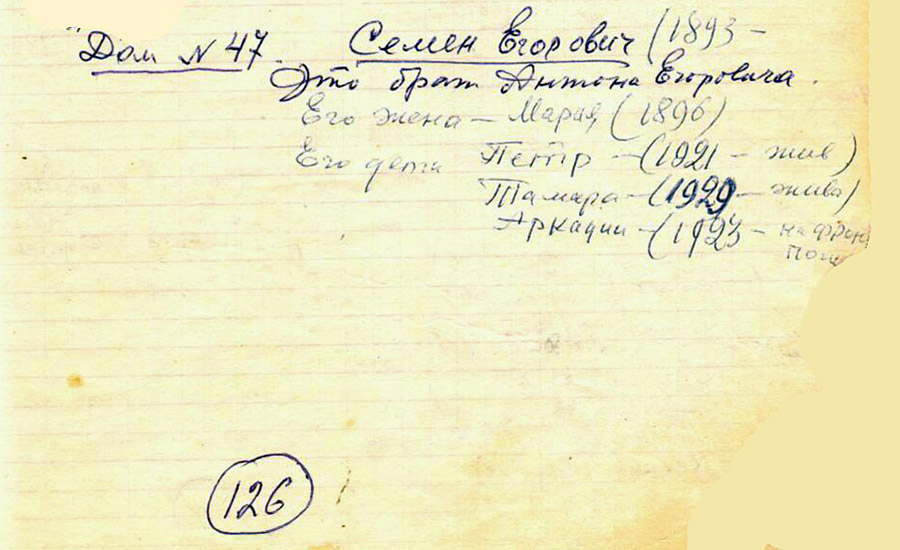 Дом N 47. Семен Егорович (1893 –
Это брат Антона Егоровича.
Его жена – Мария (1896)
Его дети Петр – (1921 – жив)
Тамара – (1929 – жива)
Аркадии – (1923 – на фрон
поги
126